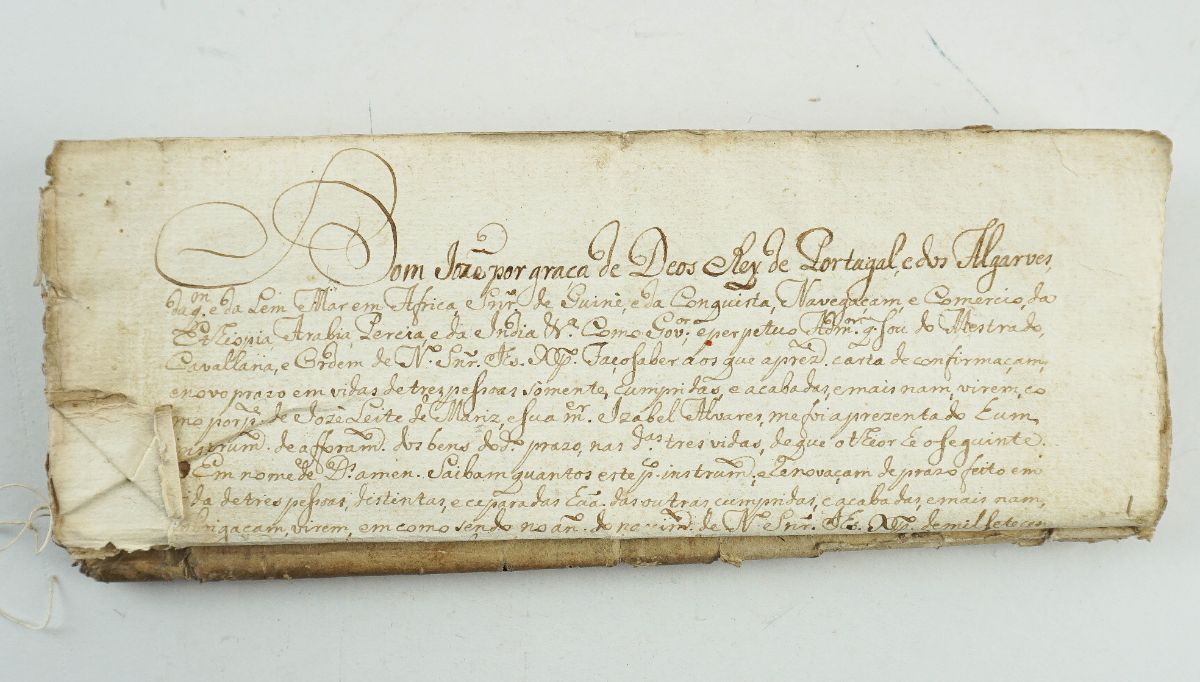 Dom Joze por graça de Deos Rey de Portugal, e dos Algarves,
daq.m e da Lem Mar em Africa, Snr. de Guinê, e da Conquista, Navegaçam, e Comercio, da
Ethiopia, Arabia Percia, e da India &.a Como Gov.or, e perpetuo Adm.or q. Sou do Mestrado,
Cavallaria, e Ordem de N. Snr. Js. Xp. Faço saber aos que a prez. carta de confirmaçam,
e novo prazo em vidas de tres pessoas somente, cumpridas, e acabadas, e mais nam, virem, co
mo por p.e de Jozê Leite de Mariz, e sua m.er Izabel Alvares, me foi aprezentado hum
instrum. de afforam. dos bens do d. prazo, nas d.as tres vidas, de que o theor he o seguinte
Em nome de D.s amen. Saibam quantos este p. instrum. e Renovaçam de prazo feito em
vida de tres pessoas, destintas, e separadas huã das outras cumpridas, e acabadas, e mais nam,
virem, em como sendo no an. do nascim. de N. Snr. Js. Xp. de mil setece
1